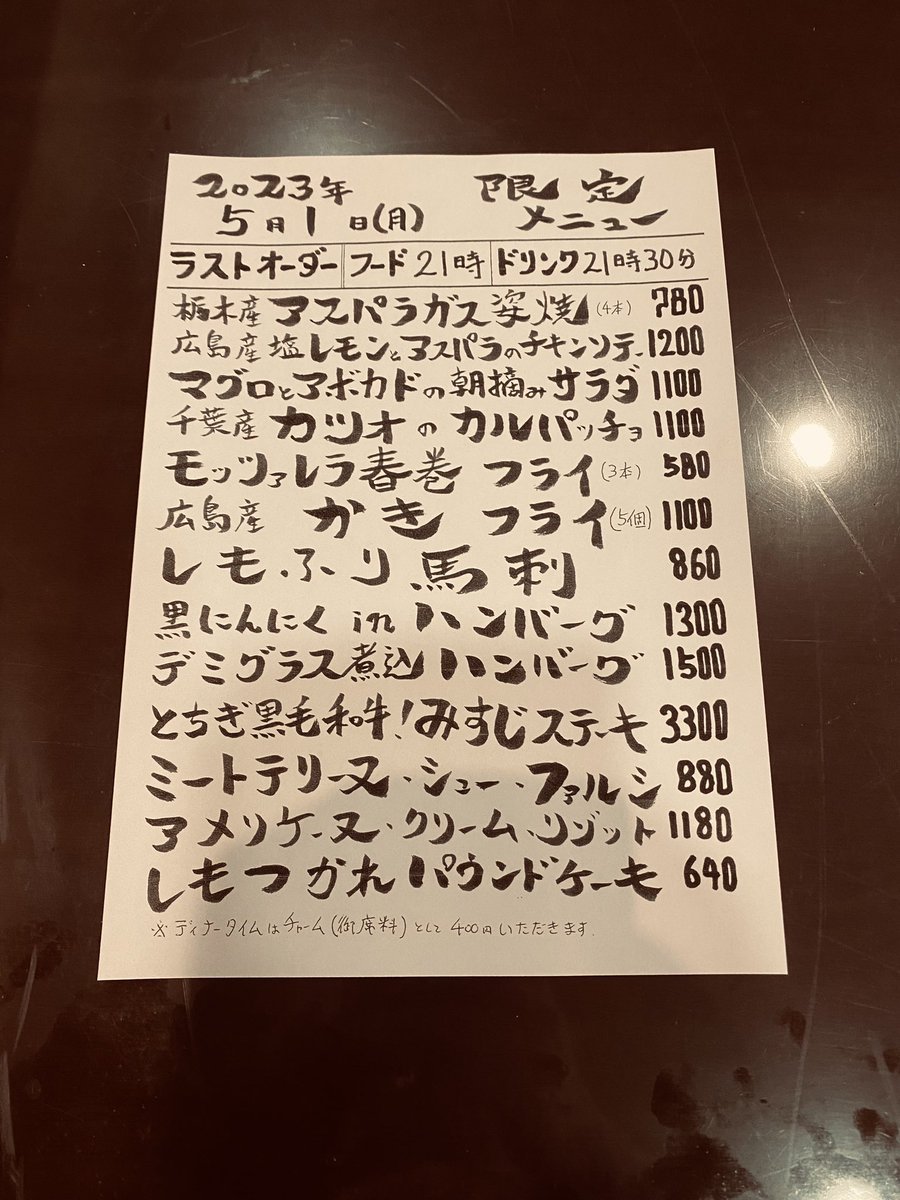 2023年 限定
5月1日(月) メニュー
ラストオーダー フード21時 ドリンク21時30分
栃木産アスパラガス姿焼(4本) 780
広島産塩レモンとアスパラのチキンソテー 1200
マグロとアボカドの朝摘みサラダ 1100
千葉産カツオのカルパッチョ 1100
モッツァレラ春巻フライ(3本) 580
広島産かきフライ(5個) 1100
しもふり馬刺 860
黒にんにくinハンバーグ 1300
デミグラス煮込ハンバーグ 1500
とちぎ黒毛和牛!みすじステーキ 3300
ミートテリーヌ・シュー・ファルシ 880
アメリケーヌ・クリーム・リゾット 1180
しもつかれパウンドケーキ 640
※ディナータイムはチャーム(御席料)として400円いただきます.